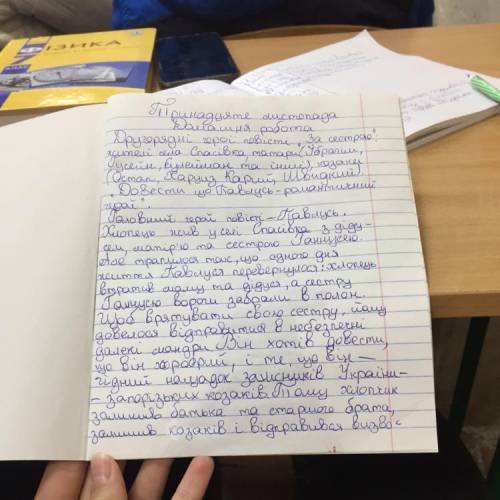 ФІЗИКА
7
Тринадцяте листопада
Домашня работа
Другорядні герої повісті "За сестрою":
жителі села Спасівка, татари (Ібрагим,
Гусейн, Сулейман та інші), козаки
Остап, Тарас Карий, Швидкий).
Довести що Павлусь-романтичний
герой".
Головний герой повісті - Павлусь.
Хлопець жив у селі Спасівка з діду-
сем, матір'ю та сестрою Ганнусею.
Але трапилося так, що одного дня
життя Павлуся перевернулося: хлопець
втратив маму та дідуся, а сестру
Ганнусю вороги забрали в полон.
Щоб врятувати свою сестру, йому
довелося відправитися в небезпечні
далекі мандри. Він хотів довести,
що він хоробрий, і те, що він -
гідний нащадок захисників України-
- запорізьких козаків. Тому хлопчик
залишив батька та старшого брата,
залишив козаків і відправився визво-